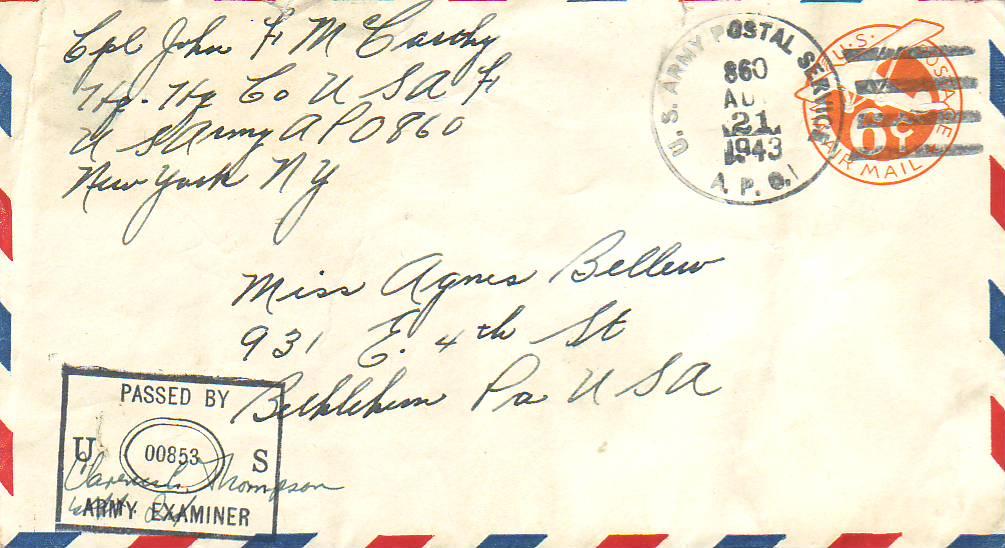 Cpl John F McCarthy
Hq. Hq Co U S A F
U S Army APO 860
New York NY
U. S. ARMY POSTAL SERVICE
860
AU
21
1943
A. P. O.
U.S. POSTAGE
6¢
AIR MAIL
Miss Agnes Bellew
931 E. 4th St
Bethlehem Pa USA
PASSED BY
U 00853 S
Thompson
ARMY EXAMINER